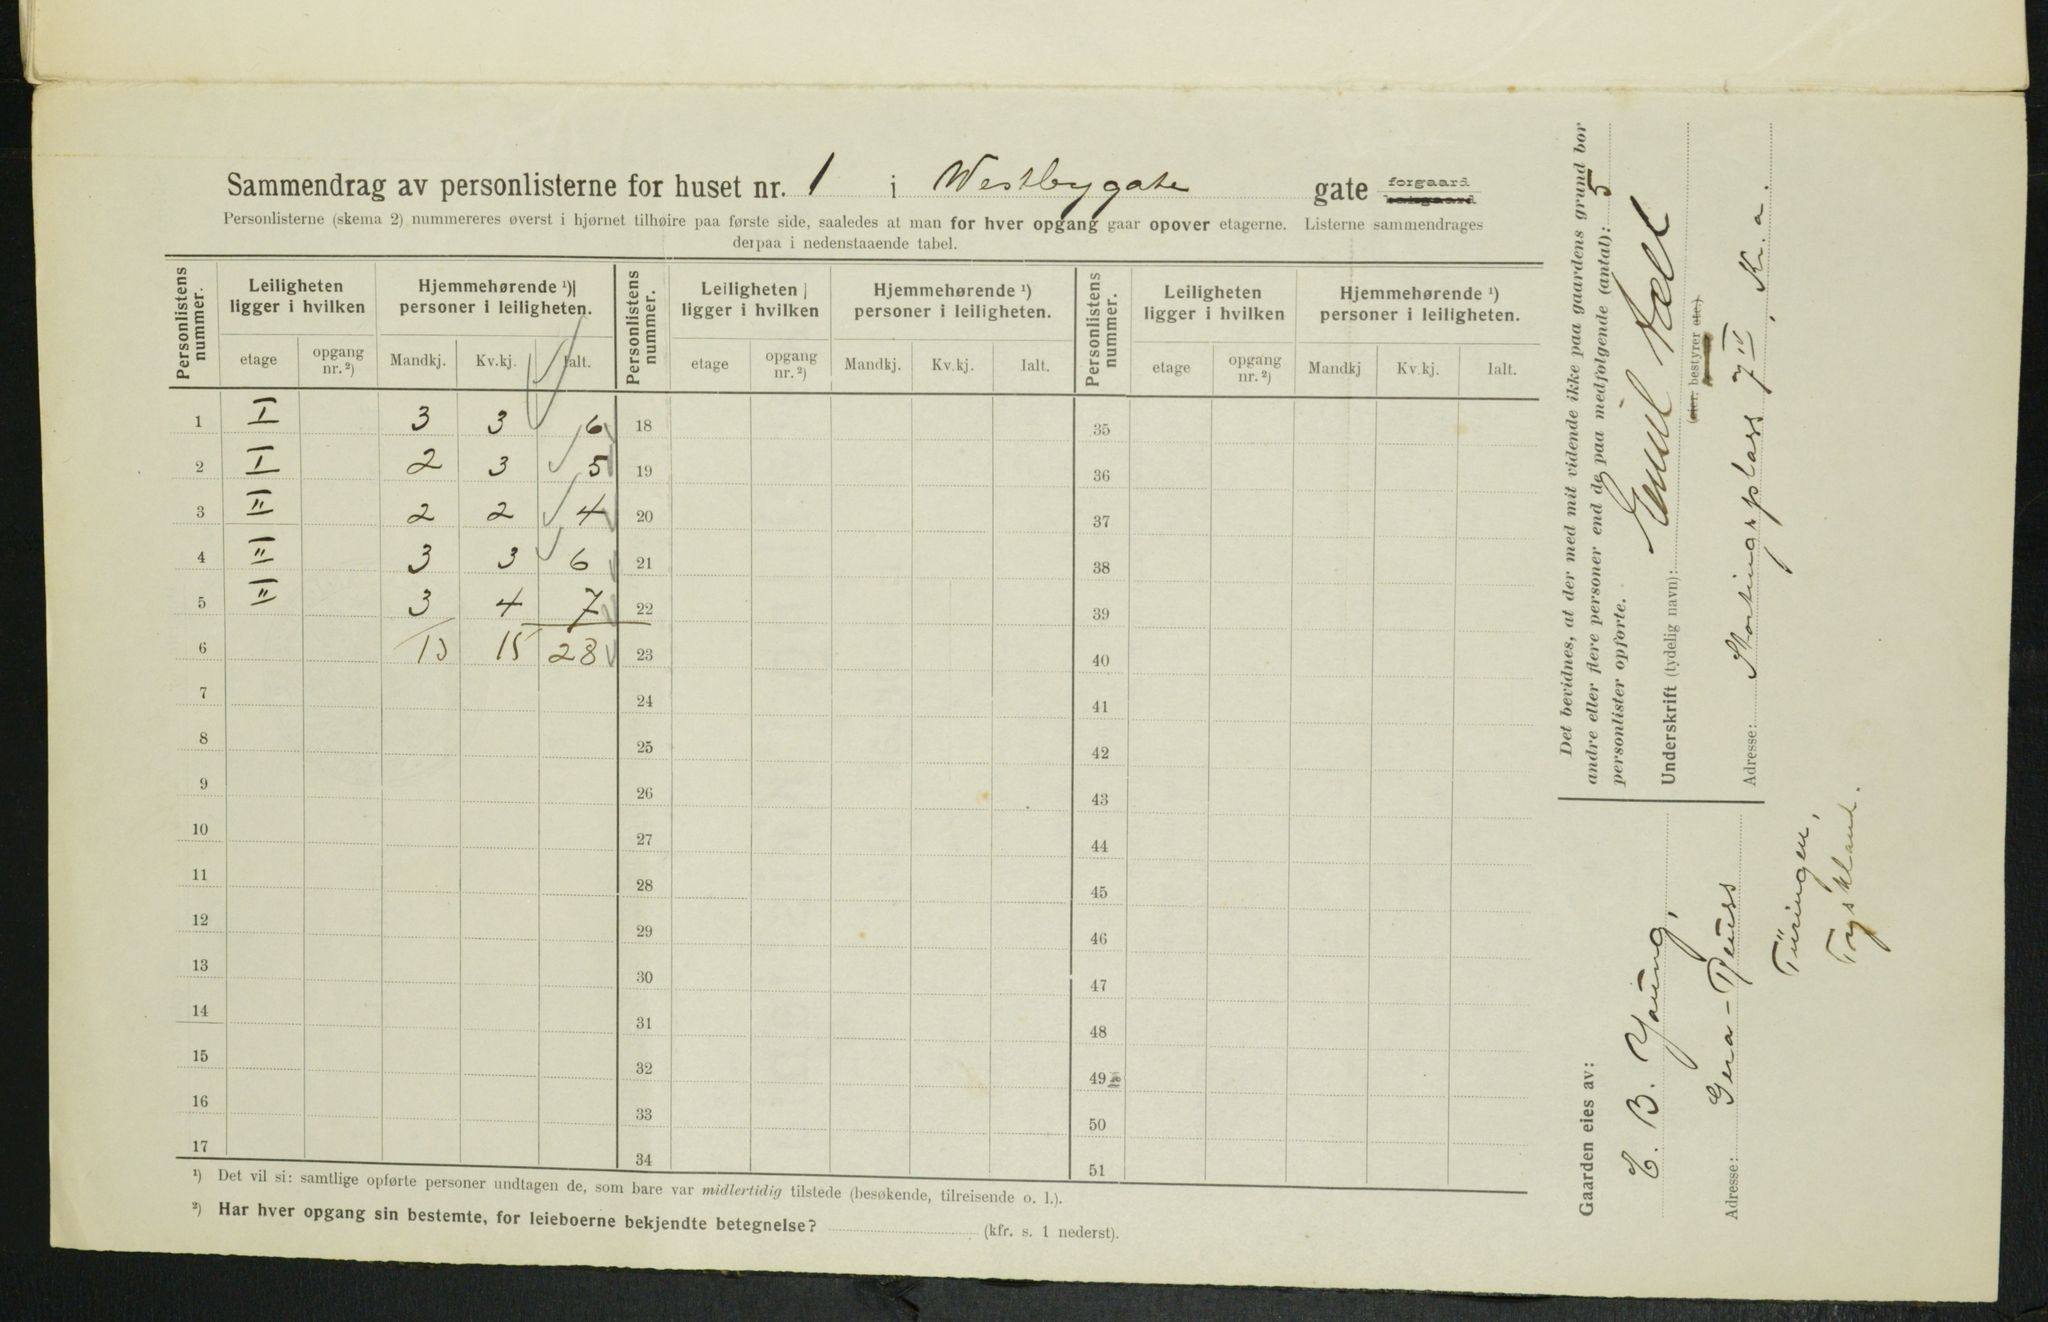 Sammendrag av personlisterne for huset nr. 1 i Westbygate gate forgaard bakgaard
Personlisterne (skema 2) nummereres øverst i hjørnet tilhøire paa første side, saaledes at man for hver opgang gaar opover etagerne. Listerne sammendrages
derpaa i nedenstaaende tabel.
Personlistens nummer. Leiligheten ligger i hvilken Hjemmehørende ¹) personer i leiligheten. Personlistens nummer. Leiligheten ligger i hvilken Hjemmehørende ¹) personer i leiligheten. Personlistens nummer. Leiligheten ligger i hvilken Hjemmehørende ¹) personer i leiligheten.
etage opgang nr. ²) Mandkj. Kv.kj. Ialt. etage opgang nr. ²) Mandkj. Kv.kj. Ialt. etage opgang nr. ²) Mandkj Kv.kj. Ialt.
1 I 3 3 6 18 35
2 I 2 3 5 19 36
3 II 2 2 4 20 37
4 II 3 3 6 21 38
5 II 3 4 7 22 39
6 13 15 28 23 40
7 24 41
8 25 42
9 26 43
10 27 44
11 28 45
12 29 46
13 30 47
14 31 48
15 32 49
16 33 50
17 34 51
¹) Det vil si: samtlige opførte personer undtagen de, som bare var midlertidig tilstede (besøkende, tilreisende o. l.).
²) Har hver opgang sin bestemte, for leieboerne bekjendte betegnelse? (kfr. s. 1 nederst).
Det bevidnes, at der med mit vidende ikke paa gaardens grund bor
andre eller flere personer end de paa medfølgende (antal): 5
personlister opførte.
Underskrift (tydelig navn): Emil
(eier. bestyrer etc.)
Adresse: Stortingsplass 7 IV, Kr.a.
Gaarden eies av:
C. B. Young,
Adresse: Gera-Reuss
Türingen,
Tyskland.